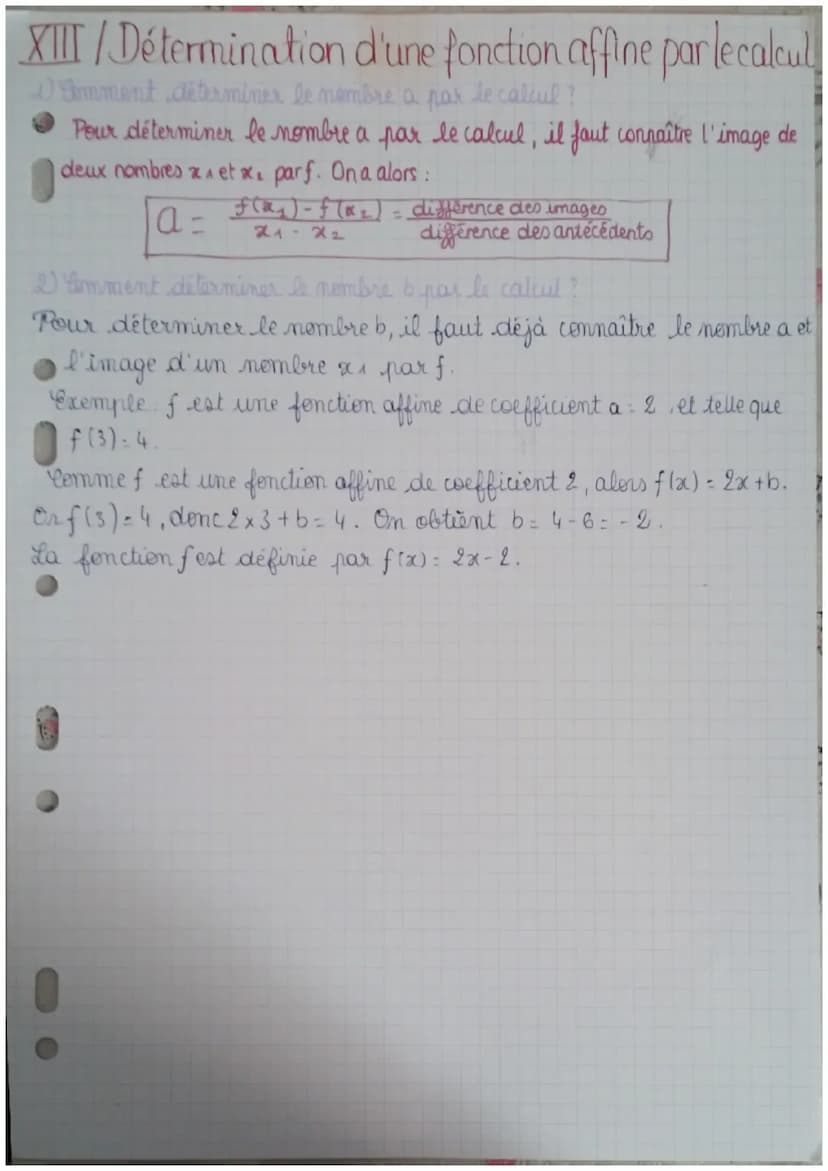 XIII / Détermination d'une fonction affine par le calcul
1) Comment déterminer le nombre a par le calcul ?
Pour déterminer le nombre a par le calcul, il faut connaître l'image de
deux nombres x₁ et x₂ par f. On a alors :
a = f(x₁) - f(x₂) / x₁ - x₂ = différence des images / différence des antécédents
2) Comment déterminer le nombre b par le calcul ?
Pour déterminer le nombre b, il faut déjà connaître le nombre a et
l'image d'un nombre x₁ par f.
Exemple f est une fonction affine de coefficient a = 2, et telle que
f(3) = 4.
Comme f est une fonction affine de coefficient 2, alors f(x) = 2x + b.
Or f(3) = 4, donc 2 x 3 + b = 4. On obtient b = 4 - 6 = - 2.
La fonction f est définie par f(x) = 2x - 2.